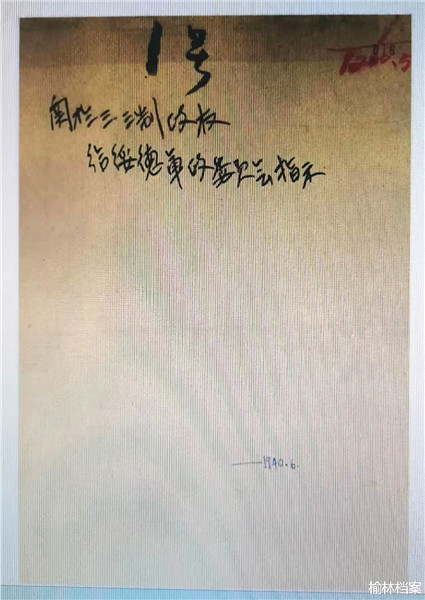 1号
关于三三制政权
给绥德军政委员会指示
——1940.6.
榆林档案